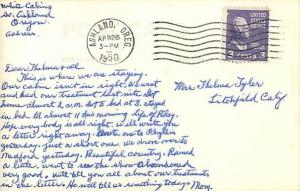 White Cabins
So. Ashland
Oregon.
Address.
ASHLAND, OREG.
APR 28
3-PM
1950
UNITED STATES POSTAGE
3 CENTS 3
Dear Thelma & all
This is where we are staying.
Our cabin isn't on right. We went
and had our treatment last nite. Got
home about 2 A.M. Got to bed at 3. stayed
in bed til almost 11 this morning. Life of Riley.
Hope every body is all right. Will write you
a letter right away. Wrote to Phyllis
yesterday. Just a short one. We drove over to
Medford yesterday. Beautiful country. Rained
a little. went to see the show
very good. will tell you all about our treatments
in the letter. He will tell us something today. Mom.
Mrs. Thelma Tyler
Litchfield Calif